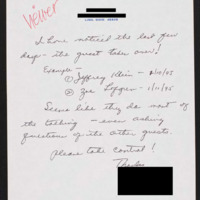 Viewer
I have noticed the last few
days - the guest take over!
Example -
① Jeffrey Klein -
② Zoe
Seems like they do most of
the talking - even asking
questions of the other guests.
Please take control!
Thanks